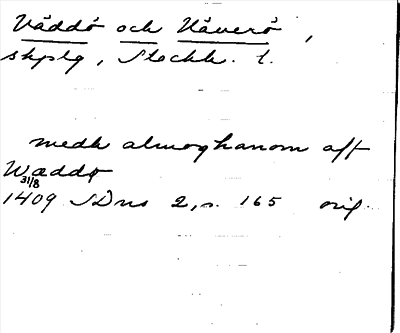 Väddö och Häverö,
skplg, Stockh. l.
medh almoghanom aff
Waddø
31/8
1409 SDns 2, s. 165 orig.